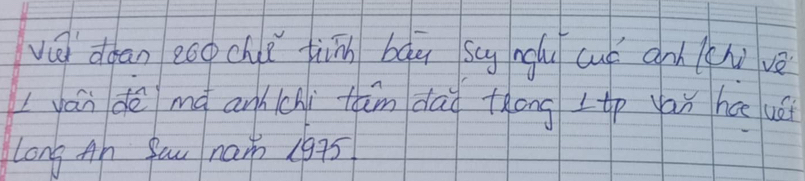 Viết đoạn 200 chữ trình bày suy nghĩ của anh/chị về
1 vấn đề mà anh/chị tâm đắc trong 1 tp văn học viết
Long An sau năm 1975.